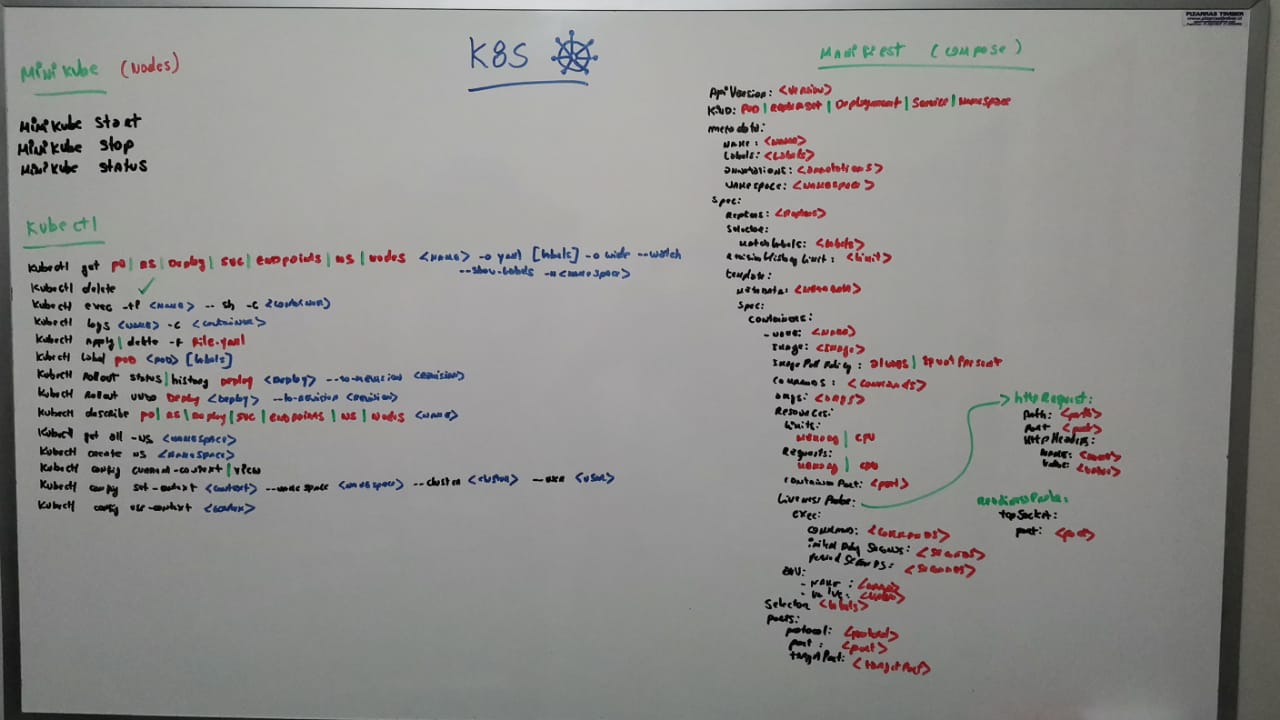 PIZARRAS TIMBER
K8S
Minikube (Nodes)
Minikube start
Minikube stop
Minikube status
Kubectl
Kubectl get po | RS | Deploy | SVC | endpoints | NS | nodes <name> -o yaml [labels] -o wide --watch
--show-labels -n <namespace>
Kubectl delete ✓
Kubectl exec -it <name> -- sh -c <container>
Kubectl logs <name> -c <container>
Kubectl apply | delete -f file.yaml
Kubectl label pod <pod> [labels]
Kubectl rollout status | history deploy <deploy> --to-revision <revision>
Kubectl rollout undo deploy <deploy> --to-revision <revision>
Kubectl describe po | RS | Deploy | SVC | endpoints | NS | nodes <name>
Kubectl get all -ns <namespace>
Kubectl create ns <namespace>
Kubectl config current-context | view
Kubectl config set-context <context> --namespace <namespace> --cluster <cluster> --user <user>
Kubectl config use-context <context>
Manifest (compose)
ApiVersion: <version>
Kind: POD | Replicaset | Deployement | Service | Namespace
metadata:
name: <name>
Labels: <labels>
annotations: <annotations>
namespace: <namespace>
spec:
Replicas: <replicas>
Selector:
matchLabels: <labels>
revisionHistory Limit: <limit>
template:
metadata: <metadata>
spec:
containers:
- name: <name>
Image: <image>
Image Pull Policy: always | IfnotPresent
commands: <commands>
args: <args>
Resources:
limits:
memory | CPU
Requests:
memory | CPU
container Port: <port>
Liveness Probe:
exec:
command: <commands>
initial Delay Seconds: <seconds>
period Seconds: <seconds>
env:
- name: <name>
- value: <value>
Selector <labels>
ports:
protocol: <protocol>
port: <port>
targetPort: <targetPort>
httpRequest:
path: <path>
port <port>
HttpHeaders:
name: <name>
value: <value>
ReadinessProbe:
tcpSocket:
port: <port>